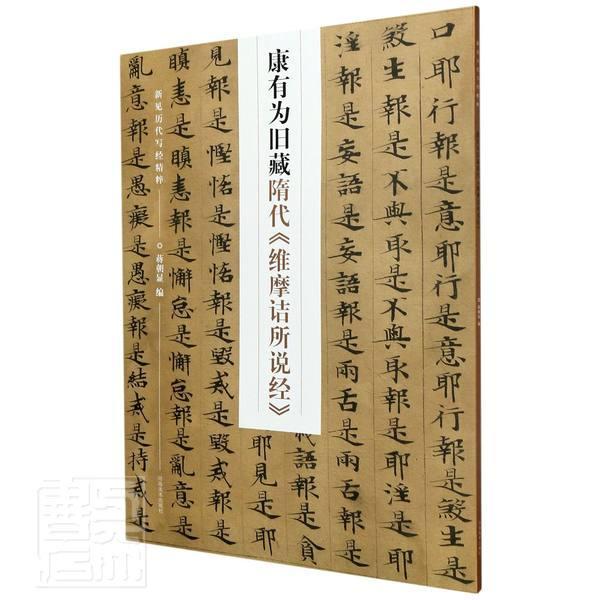 口耶行報是意耶行是意耶行報是殺生是
殺生報是不與取是不與取報是耶婬是耶
婬報是妄語是妄語報是兩舌是兩舌報是
語報是貪
康有为旧藏隋代《维摩诘所说经》
耶見是
見報是慳悋是慳悋報是毀戒是毀戒報是
瞋恚是瞋恚報是懈怠是懈怠報是亂意是
新见历代写经精粹
蒋朝显 编
亂意報是愚癡是愚癡報是結戒是持戒是